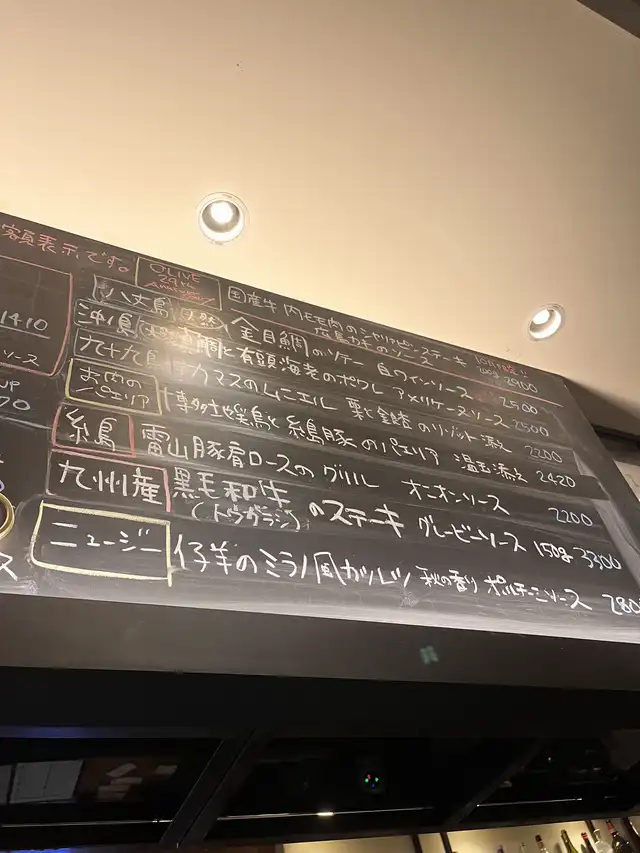 額表示です。
OLIVE 29th Anniversary
国産牛 内モモ肉のシャリアピンステーキ
広島カキのソース 2900
八丈島 (天然) 金目鯛のソテー 白ワインソース 2500
沖ノ島 真鯛と有頭海老のポワレ アメリケーヌソース 2500
九十九島 カマスのムニエル 栗と のリゾット添え 2200
お肉のパエリア 博多地 と 糸島豚のパエリア 温玉添え 2420
糸島 雷山豚肩ロースのグリル オニオンソース 2200
九州産 黒毛和牛(トウガラシ)のステーキ グレービーソース 150g 3300
ニュージー 仔羊のミラノ風カツレツ 秋の香り ポルチーニソース 280
1410
ソース
ス